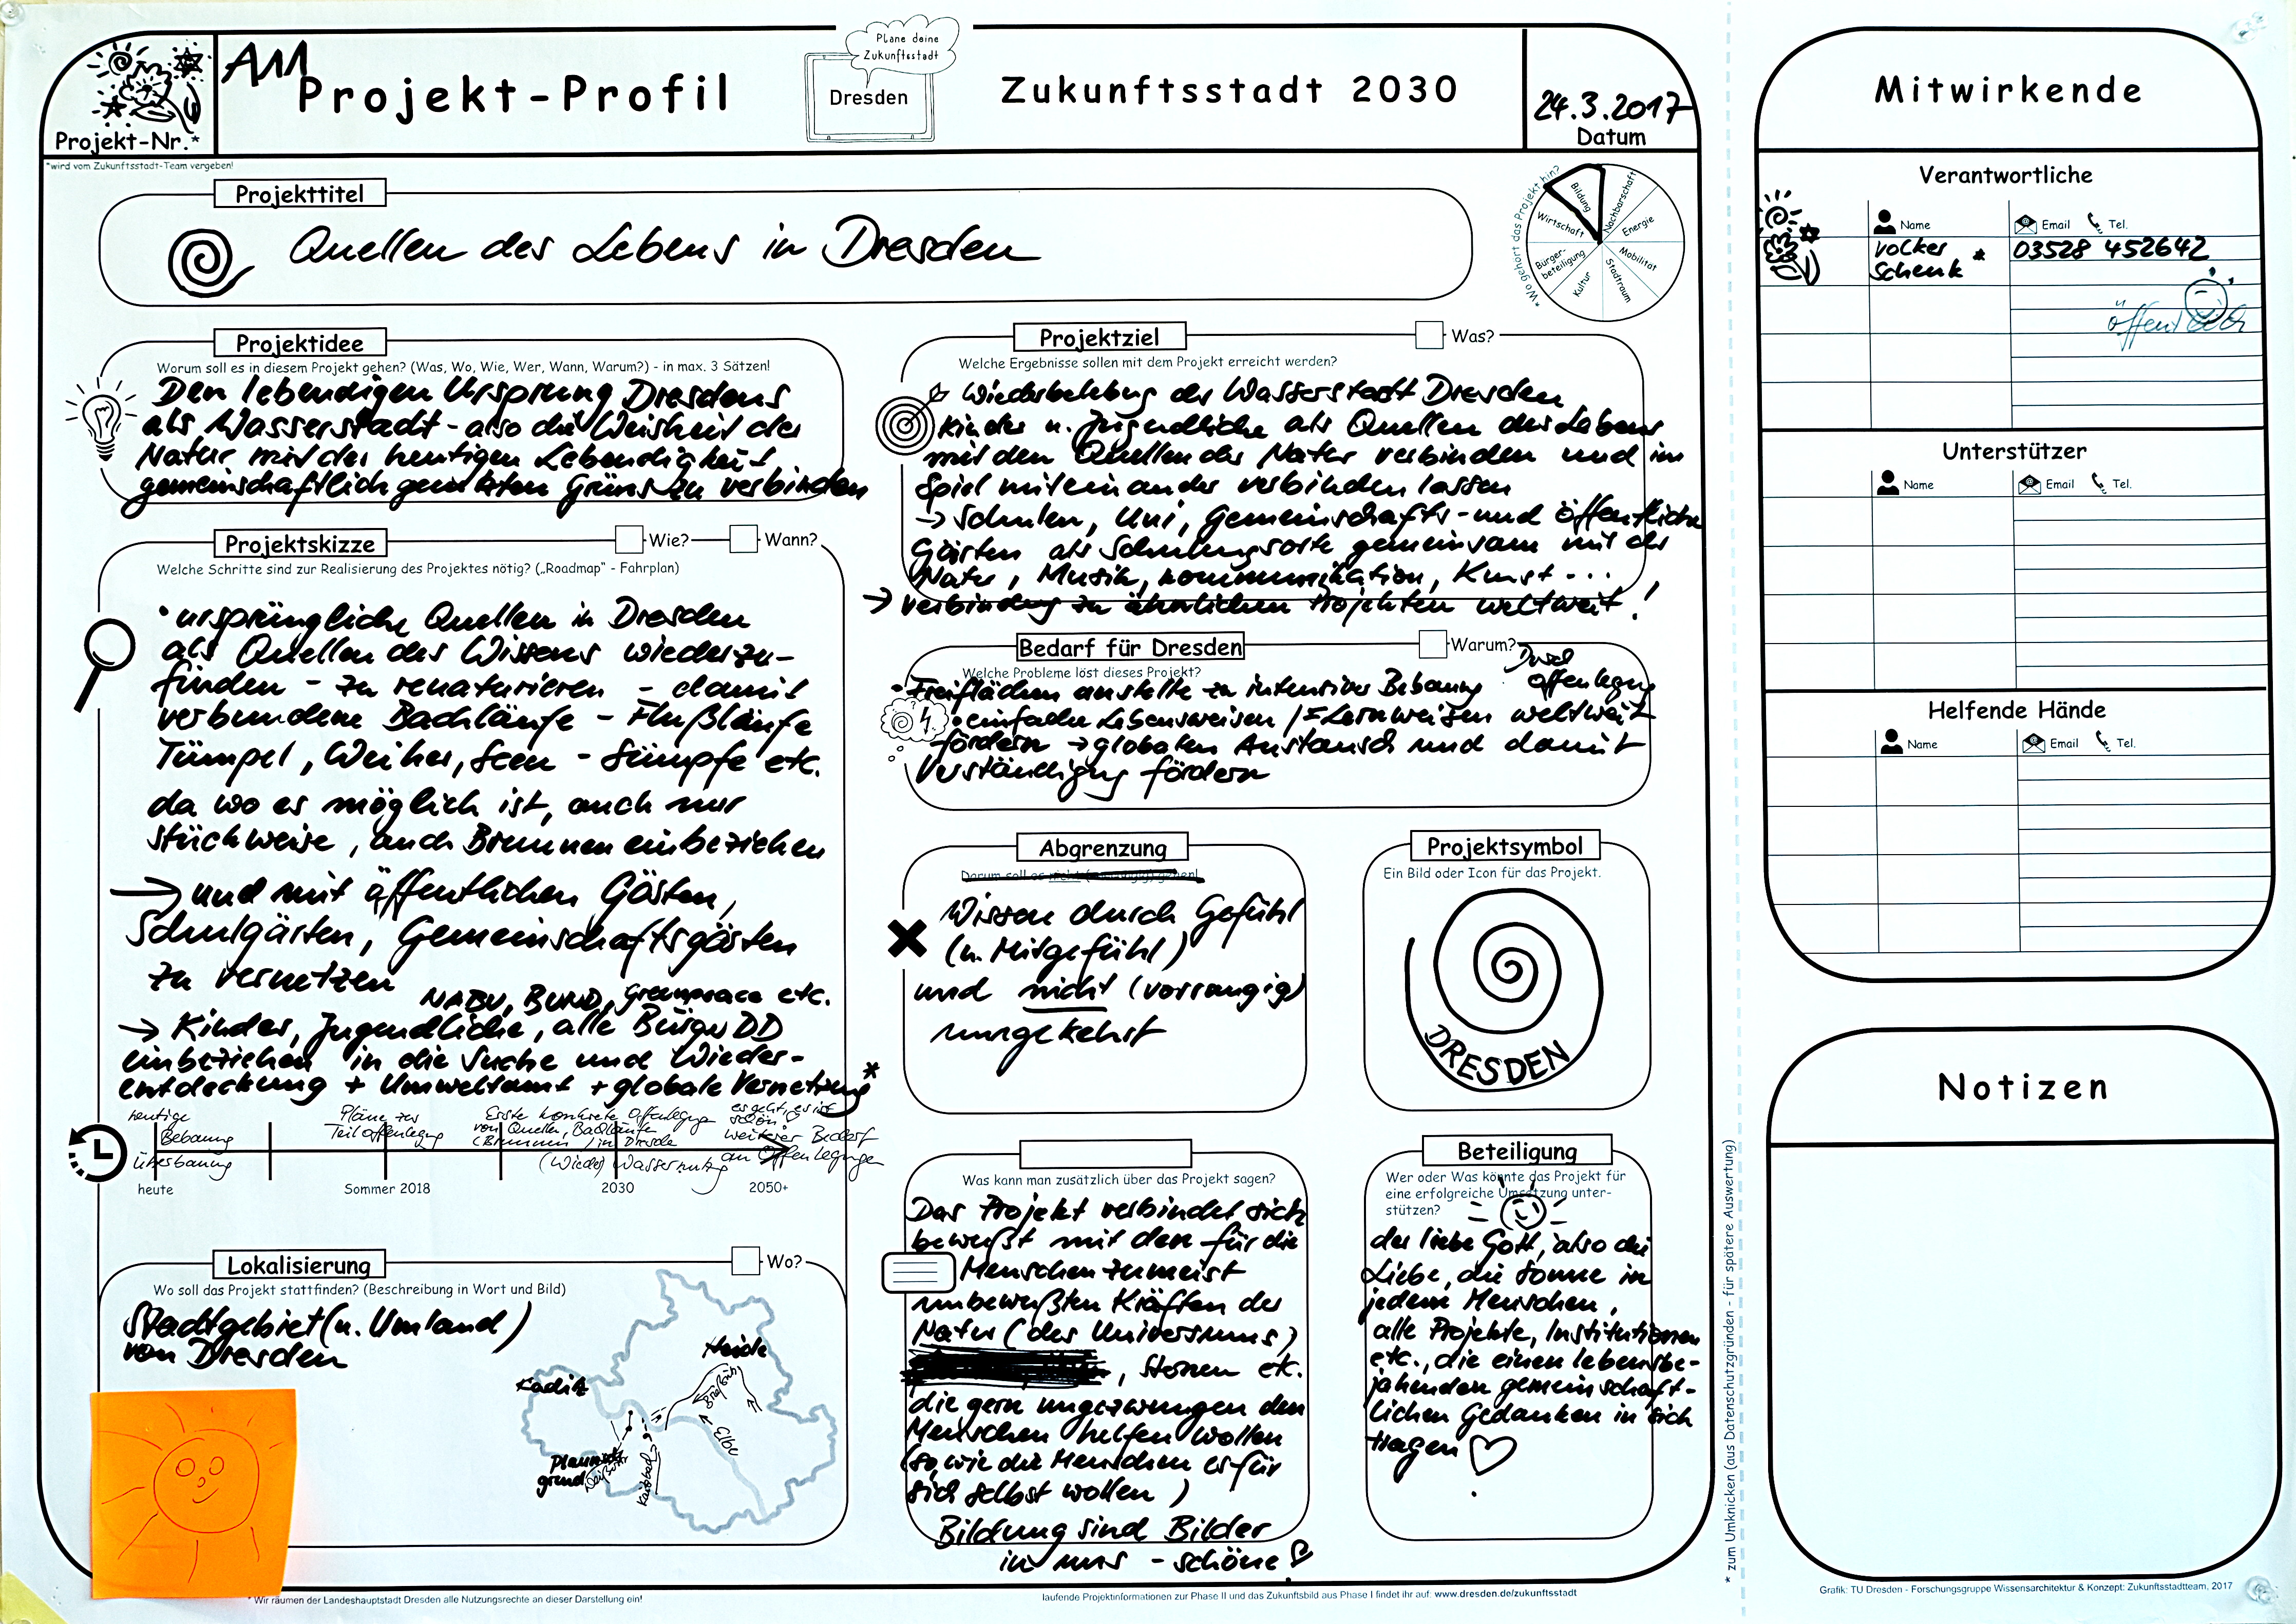 A11
Projekt-Profil
Plane deine
Zukunftsstadt
Dresden
Zukunftsstadt 2030
24.3.2017
Datum
Projekt-Nr.*
*wird vom Zukunftsstadt-Team vergeben!
Projekttitel
Quellen des Lebens in Dresden
*Wo gehört das Projekt hin?
Bildung
Nachbarschaft
Energie
Mobilität
Stadtraum
Kultur
Bürger-
beteiligung
Wirtschaft
Projektidee
Worum soll es in diesem Projekt gehen? (Was, Wo, Wie, Wer, Wann, Warum?) - in max. 3 Sätzen!
Den lebendigen Ursprung Dresdens
als Wasserstadt - also die Weisheit der
Natur mit der heutigen Lebendigkeit
gemeinschaftlich genutzten Grüns zu verbinden
Projektskizze
Wie?
Wann?
Welche Schritte sind zur Realisierung des Projektes nötig? („Roadmap“ - Fahrplan)
• ursprüngliche Quellen in Dresden
als Quellen des Wissens wiederzu-
finden - zu renaturieren - damit
verbundene Bachläufe - Flußläufe
Tümpel, Weiher, Seen - Sümpfe etc.
da wo es möglich ist, auch nur
stückweise, auch Brunnen einbeziehen
→ und mit öffentlichen Gärten,
Schulgärten, Gemeinschaftsgärten
zu vernetzen
NABU, BUND, Greenpeace etc.
→ Kinder, Jugendliche, alle Bürger DD
einbeziehen in die Suche und Wieder-
entdeckung + Umweltamt + globale Vernetzung *
heutige
Bebauung
Überbauung
Pläne zur
Teiloffenlegung
Erste konkrete Offenlegung
von Quellen, Bachläufe
(Brunnen) in Dresden
(Wieder) Wassernutzg
es geht, es ist
schön!
weiterer Bedarf
an Offenlegungen
heute
Sommer 2018
2030
2050+
Lokalisierung
Wo?
Wo soll das Projekt stattfinden? (Beschreibung in Wort und Bild)
Stadtgebiet (u. Umland)
von Dresden
Heide
Kaditz
Elbe
Kaitzbach
grund
Projektziel
Was?
Welche Ergebnisse sollen mit dem Projekt erreicht werden?
Wiederbelebung der Wasserstadt Dresden
Kinder u. Jugendliche als Quellen des Lebens
mit den Quellen der Natur verbinden und im
Spiel miteinander verbinden lassen
→ Schulen, Uni, Gemeinschafts- und öffentliche
Gärten als Schulungsorte gemeinsam mit der
Natur, Musik, Kommunikation, Kunst ...
→ Verbindung zu ähnlichen Projekten weltweit!
Bedarf für Dresden
Warum?
Welche Probleme löst dieses Projekt?
Durch
Offenlegung
• Freiflächen anstelle zu intensiver Bebauung
• einfache Lebensweisen /= Lernweisen weltweit
fördern → globalen Austausch und damit
Verständigung fördern
Abgrenzung
Wissen durch Gefühl
(u. Mitgefühl)
und nicht (vorrangig)
umgekehrt
Projektsymbol
Ein Bild oder Icon für das Projekt.
DRESDEN
Was kann man zusätzlich über das Projekt sagen?
Das Projekt verbindet sich
bewußt mit den für die
Menschen zumeist
unbewußten Kräften der
Natur (des Universums)
, Stonen etc.
die gern ungezwungen den
Menschen helfen wollen
(so, wie die Menschen es für
sich selbst wollen)
Bildung sind Bilder
in uns - schöne!
Beteiligung
Wer oder Was könnte das Projekt für
eine erfolgreiche Umsetzung unter-
stützen?
der liebe Gott, also die
Liebe, die Sonne in
jedem Menschen,
alle Projekte, Institutionen
etc., die einen lebensbe-
jahenden gemeinschaft-
lichen Gedanken in sich
tragen
* Wir räumen der Landeshauptstadt Dresden alle Nutzungsrechte an dieser Darstellung ein!
laufende Projektinformationen zur Phase II und das Zukunftsbild aus Phase I findet ihr auf: www.dresden.de/zukunftsstadt
* zum Umknicken (aus Datenschutzgründen - für spätere Auswertung)
Mitwirkende
Verantwortliche
Name
Email
Tel.
Volker *
Schenk
03528 452642
öffentlich
Unterstützer
Name
Email
Tel.
Helfende Hände
Name
Email
Tel.
Notizen
Grafik: TU Dresden - Forschungsgruppe Wissensarchitektur & Konzept: Zukunftsstadtteam, 2017